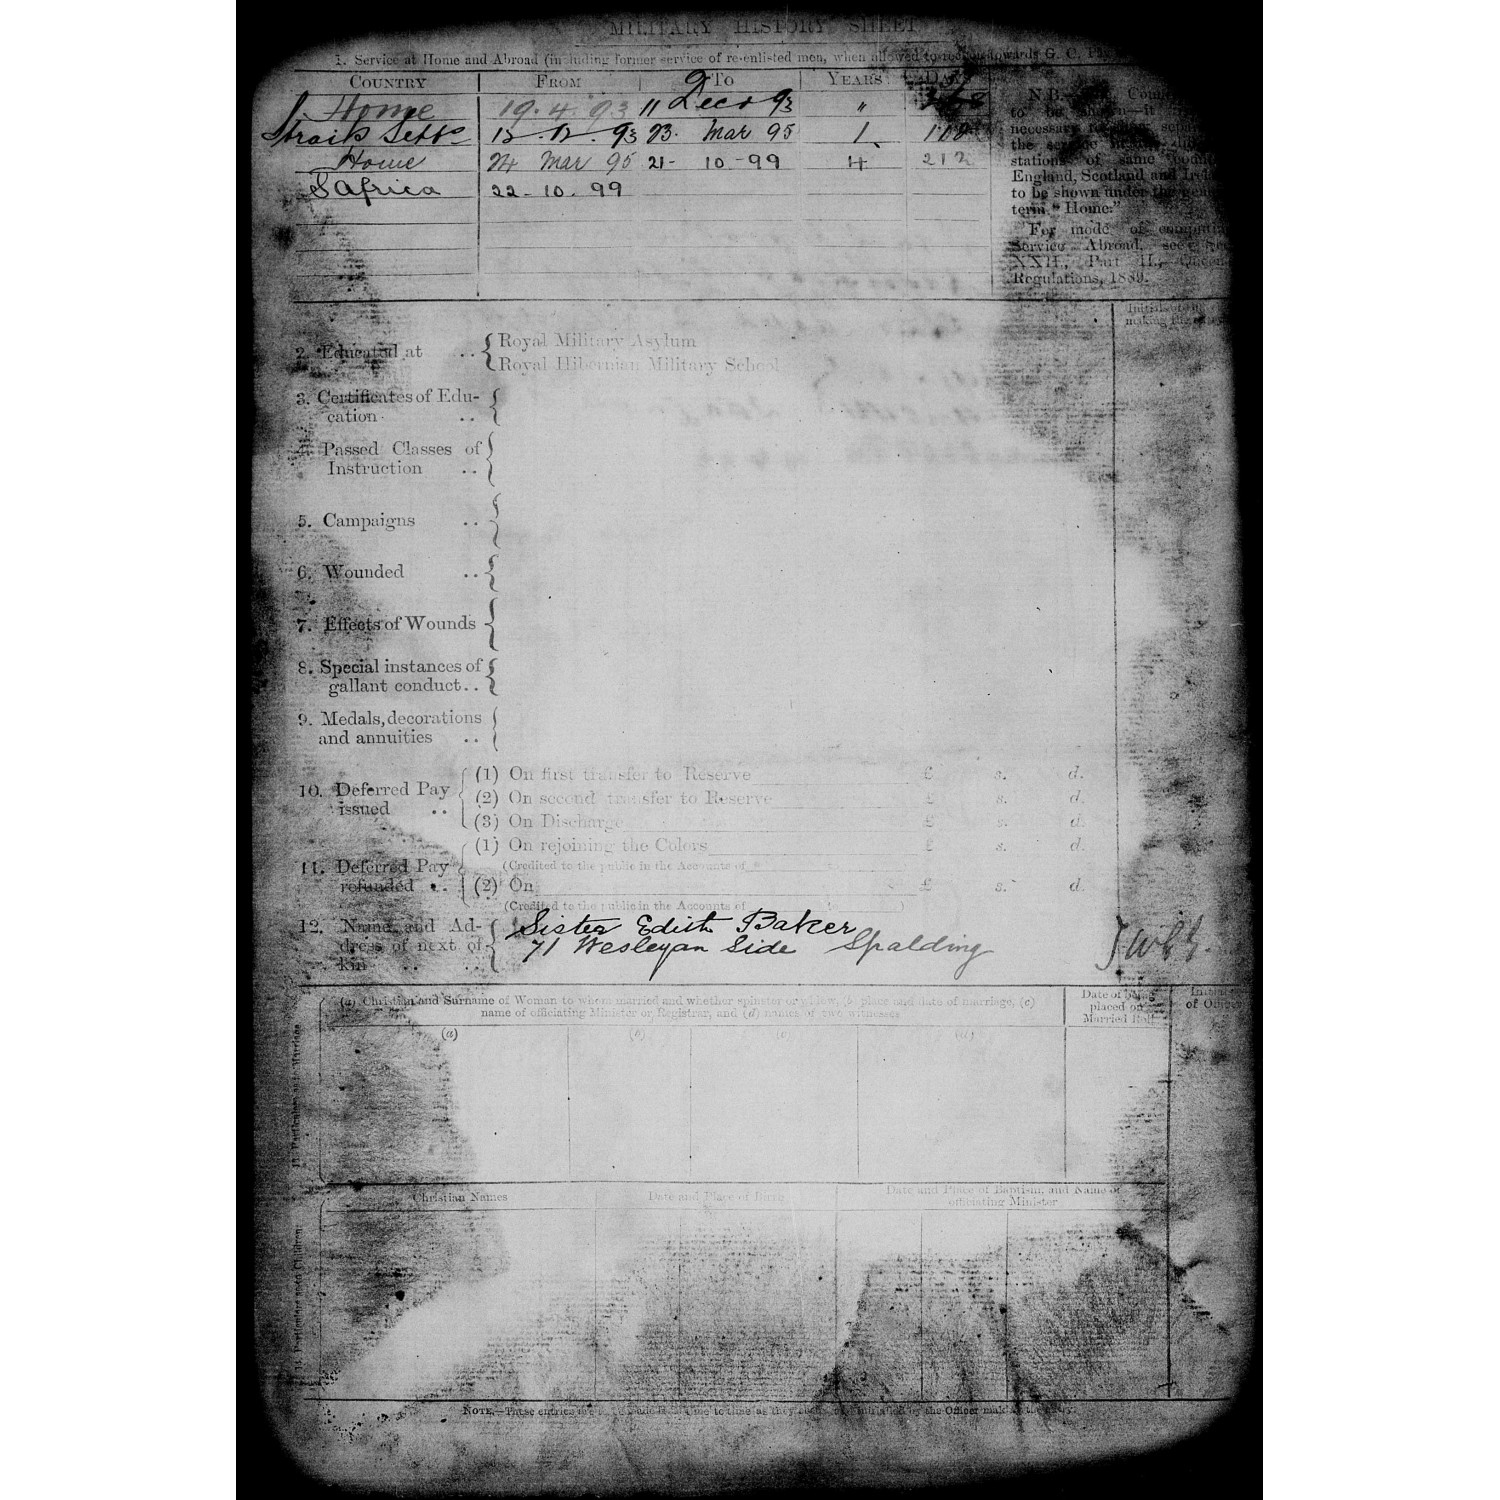 MILITARY HISTORY SHEET
1. Service at Home and Abroad (including former service of re-enlisted men, when allowed to reckon towards G. C.
COUNTRY FROM TO YEARS DAYS
Home 19. 4. 93 11 Decr 93 "
Straits Setts 12. 12. 93 23. Mar 95 1
Home 24 Mar 95 21- 10-99 4 212
S Africa 22-10. 99
N.B.
to be
necessary
the
stations of same
England, Scotland and
to be shown under the
term "Home."
For mode of
Service Abroad, see
XXII., Part II.,
Regulations, 1889.
2. Educated at .. Royal Military Asylum
Royal Hibernian Military School
3. Certificates of Edu-
cation ..
4. Passed Classes of
Instruction ..
5. Campaigns ..
6. Wounded ..
7. Effects of Wounds
8. Special instances of
gallant conduct..
9. Medals, decorations
and annuities ..
10. Deferred Pay issued .. (1) On first transfer to Reserve £ s. d.
(2) On second transfer to Reserve £ s. d.
(3) On Discharge £ s. d.
11. Deferred Pay refunded .. (1) On rejoining the Colors £ s. d.
(Credited to the public in the Accounts of
(2) On £ s. d.
(Credited to the public in the Accounts of )
12. Name and Ad-
dress of next of
kin
Sister Edith Baker
71 Wesleyan Side Spalding
(a) Christian and Surname of Woman to whom married and whether spinster or widow, (b) place and date of marriage, (c)
name of officiating Minister or Registrar, and (d) names of two witnesses
Date of being
placed on
Married Roll
of Officer
(a) (b) (c) (d)
Christian Names Date and Place of Birth Date and Place of Baptism, and Name of
officiating Minister
NOTE.—These entries